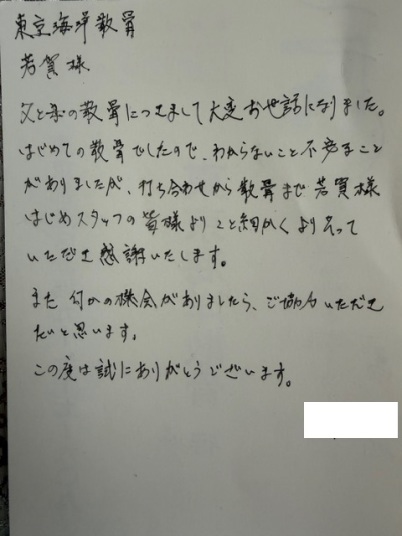 東京海洋散骨
芳賀様
父と母の散骨につきまして大変お世話になりました。
はじめての散骨でしたので、わからないこと不安なこと
がありましたが、打ち合わせから散骨まで芳賀様
はじめスタッフの皆様よりこと細かくよりそって
いただき感謝いたします。
また何かの機会がありましたら、ご協力いただき
たいと思います。
この度は誠にありがとうございます。